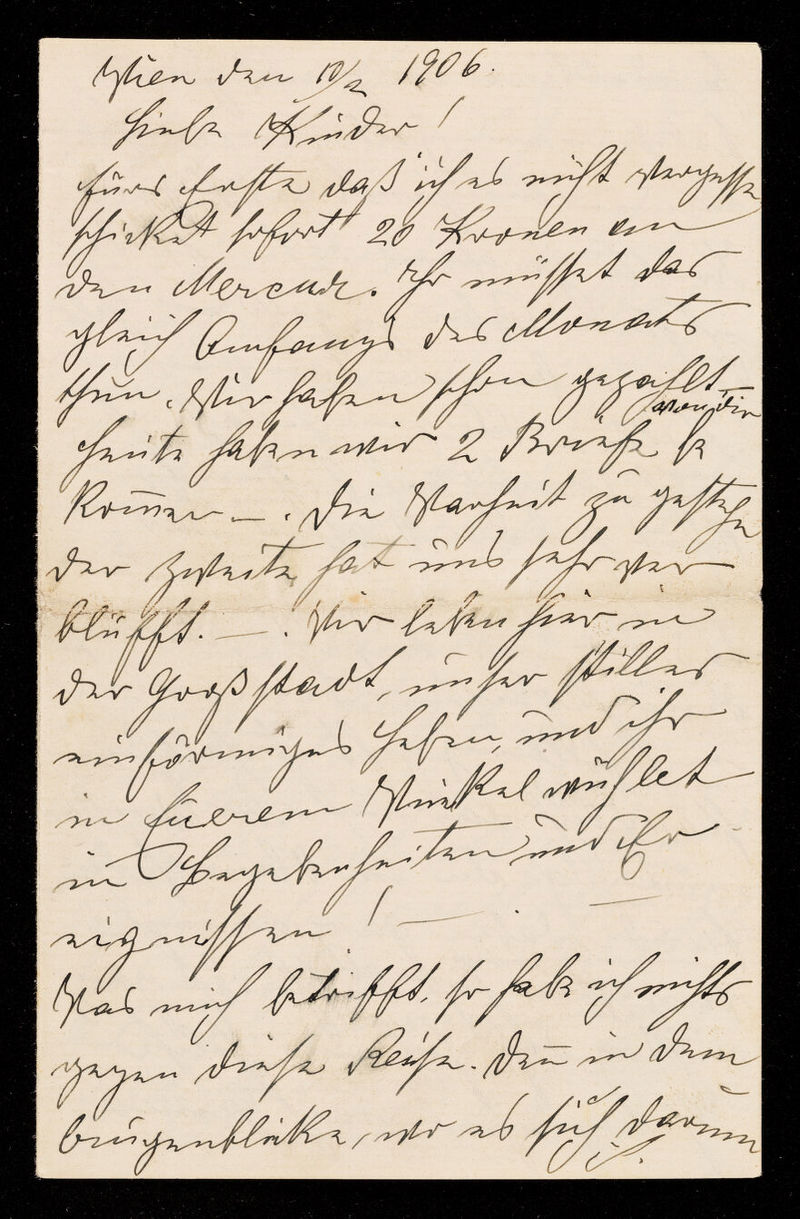 Wien den 10/2 1906.
Liebe Kinder!
Fürs Erste daß ich es nicht vergesse
schicket sofort 20 Kronen an
den Mercur. Ihr müsset das
gleich Anfangs des Monats
thun. Wir haben schon gezahlt –
von dir
Heute haben wir 2 Briefe be
kom̅en –. Die Warheit zu gestehn
der zweite hat uns sehr ver
blüfft. –. Wir leben hier in
der Großstadt, unser stilles
einförmiges Leben, und ihr
in Euerem Winkel wühlet
in Begebenheiten und Er
eignissen! – . –
Was mich betrifft, so habe ich nichts
gegen diese Reise. Den̅ in dem
Augenblicke, wo es sich darum